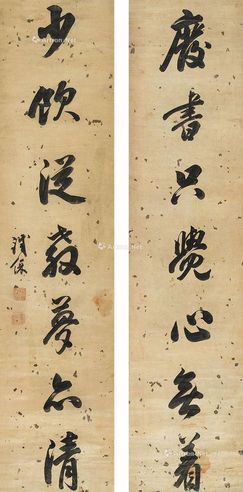 廢書只覺心無着
少飲從教夢亦清
鐵保